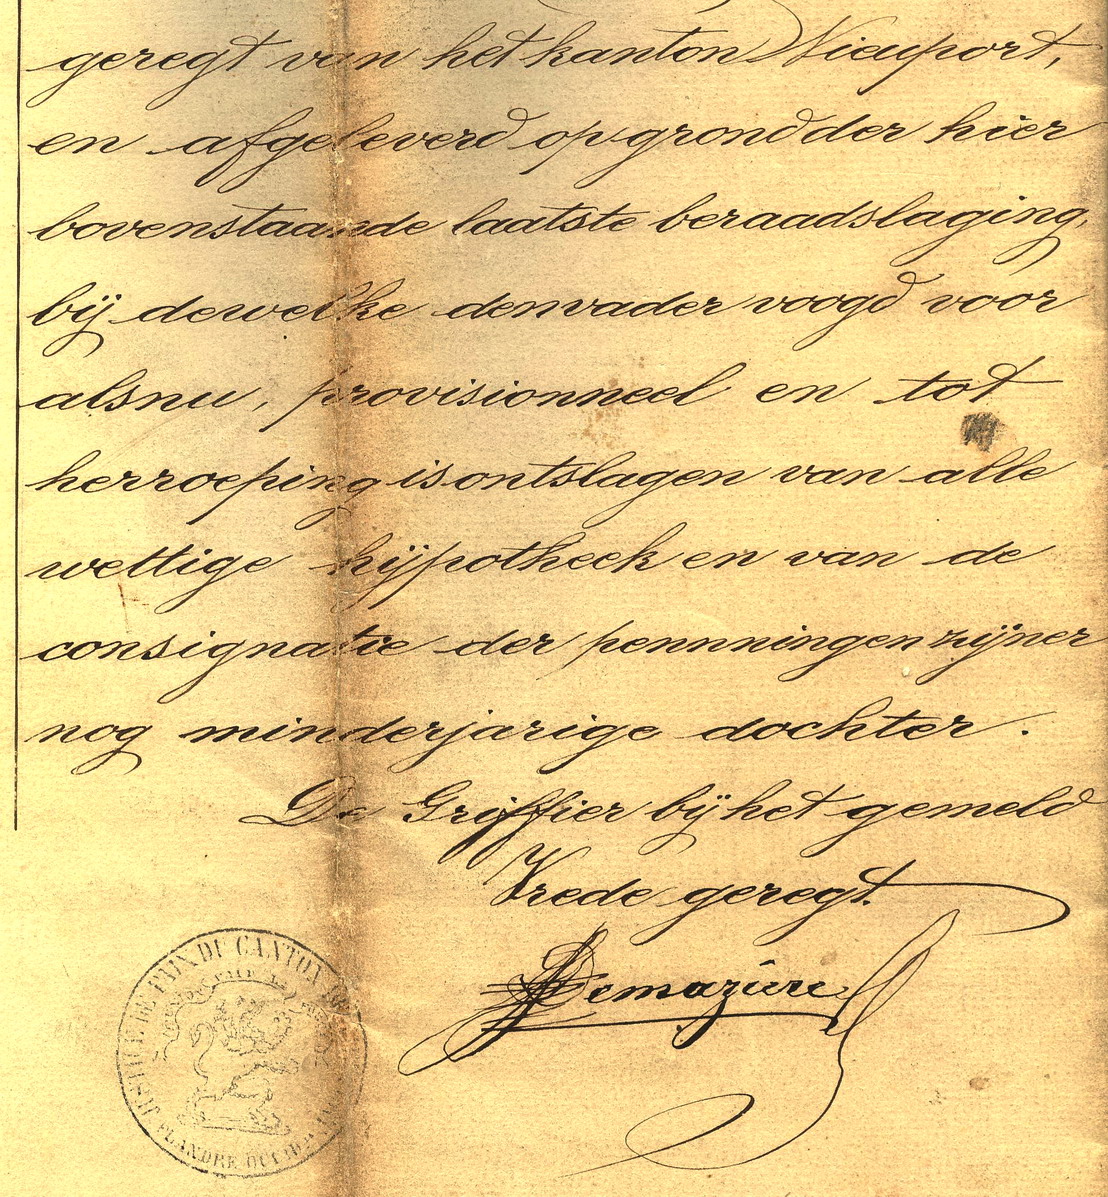 geregt van het kanton Nieuport,
en afgeleverd op grond der hier
bovenstaande laatste beraadslaging,
bij dewelke den vader voogd voor
alsnu, provisionneel en tot
herroeping is ontslagen van alle
wettige hijpotheek en van de
consignatie der pennningen zijner
nog minderjarige dochter.
De Griffier bij het gemeld
Vrede geregt.
Demazière
JUSTICE DE PAIX DU CANTON DE
FLANDRE OCCID